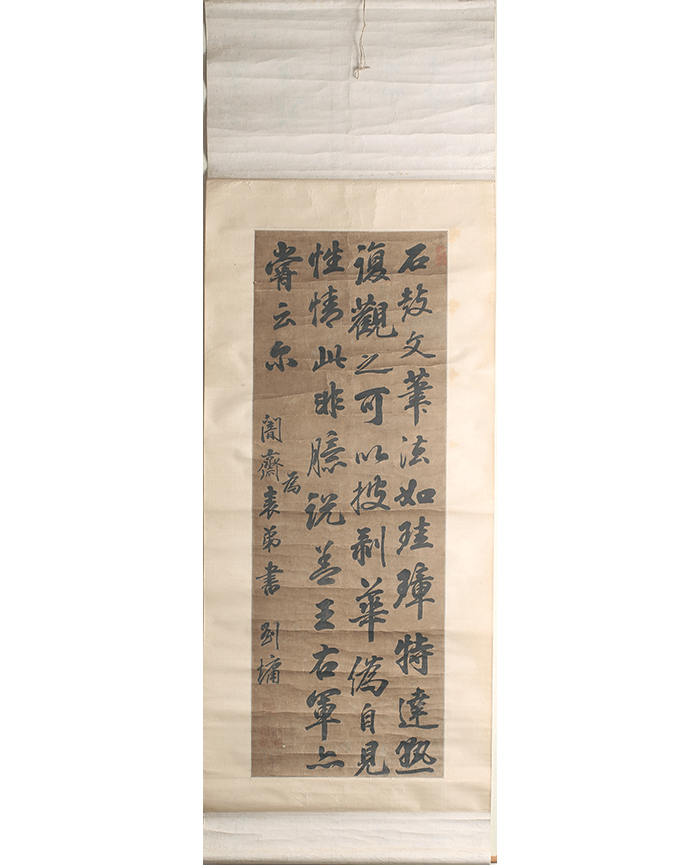 石鼓文筆法如珪璋特達熟
復觀之可以披剥華僞自見
性情此非臆說盖王右軍亦
嘗云尔
闇齋為表弟書 劉墉